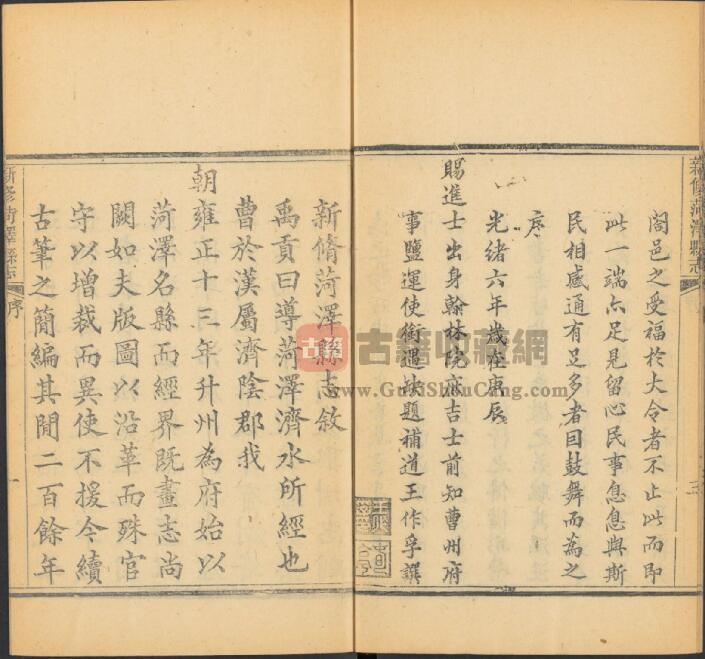 新修菏澤縣志
閤邑之受福於大令者不止此而即
此一端亦足見留心民事息息與斯
民相感通有足多者曰鼓舞而為之
序
光緒六年歲在庚辰
賜進士出身翰林院庶吉士前知曹州府
事鹽運使銜遇缺題補道王作孚譔
三
新脩菏澤縣志敘
禹貢曰導菏澤濟水所經也
曹於漢屬濟陰郡我
朝雍正十三年升州為府始以
菏澤名縣而經界既畫志尚
闕如夫版圖以沿革而殊官
守以增裁而異使不援今續
古筆之簡編其閒二百餘年
新修菏澤縣志
序
一
古籍收藏網
www.GuJiShuCang.com